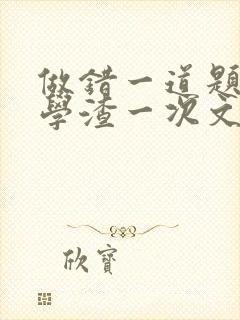 做錯一道題
學渣一次文
欣寶